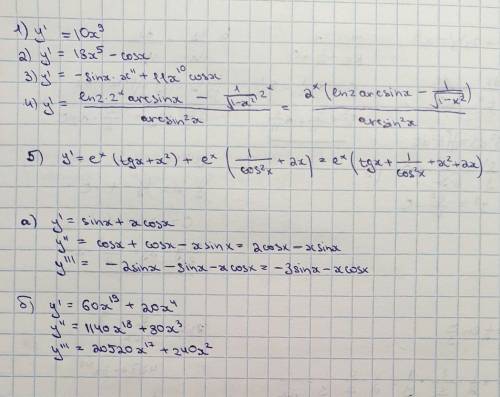 1) y' = 10x⁹
2) y' = 18x⁵ - cosx
3) y' = -sinx·x¹¹ + 11x¹⁰cosx
4) y' = (ln2·2ˣ arcsinx - 1/√(1-x²) 2ˣ) / arcsin²x = 2ˣ(ln2 arcsinx - 1/√(1-x²)) / arcsin²x
5) y' = eˣ(tgx + x²) + eˣ(1/cos²x + 2x) = eˣ(tgx + 1/cos²x + x² + 2x)
а) y' = sinx + xcosx
y'' = cosx + cosx - xsinx = 2cosx - xsinx
y''' = -2sinx - sinx - xcosx = -3sinx - xcosx
б) y' = 60x¹⁹ + 20x⁴
y'' = 1140x¹⁸ + 80x³
y''' = 20520x¹⁷ + 240x²